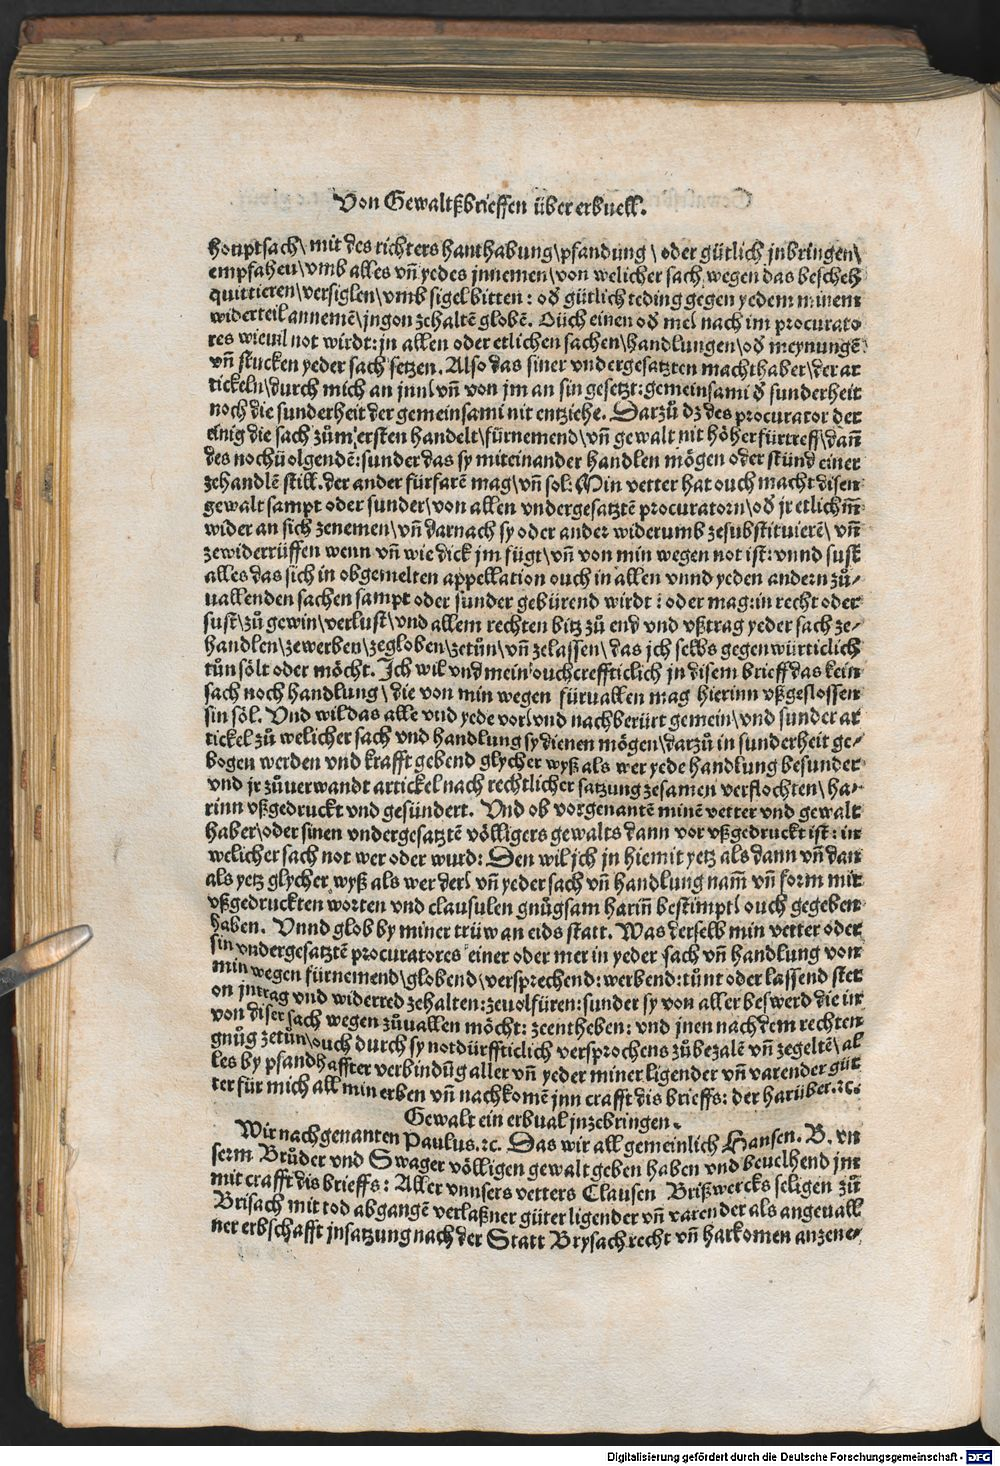 Von Gewaltßbrieffen über erbuell.
houptsach\ mit des richters hanthabung\pfandung\ oder gütlich jnbringen\
empfahen\vmb alles vñ yedes jnnemen\von welicher sach wegen das bescheh
quittieren\versiglen\vmb sigel bitten: oď gütlich teding gegen yedem minem
widerteil annemē\jngon zehaltē globē. Ouch einen oď me\ nach im procurato
res wieuil not wirdt: jn allen oder etlichen sachen\handlungen\oď meynungē
vñ stucken yeder sach setzen. Also das siner vndergesatzten machthaber\der ar
tickeln\durch mich an jnn\vñ von jm an sin gesetzt: gemeinsami ď sunderheit
noch die sunderheit der gemeinsami nit entziehe. Darzů dz des procurator der
einig die sach zům ersten handelt\fürnemend\vñ gewalt nit höher fürtreff\dañ
des nochuolgendē: sunder das sy miteinander handlen mögen oder stünd einer
zehandlē still. der ander fürfarē mag\vñ sol: Min vetter hat ouch macht disen
gewalt sampt oder sunder\von allen vndergesatztē procuratorn\oď jr etlichm̄
wider an sich zenemen\vñ darnach sy oder ander widerumb zesubstituierē\ vñ
zewiderrüffen wenn vñ wie dick jm fügt\vñ von min wegen not ist: vnnd sust
alles das sich in obgemelten appellation ouch in allen vnnd yeden andern zů-
uallenden sachen sampt oder sunder gebürend wirdt: oder mag: in recht oder
sust\zů gewin\verlust\vnd allem rechten bitz zů end vnd vßtrag yeder sach ze-
handlen\zewerben\zegloben\zetůn\vñ zelassen\ das jch selbs gegenwürticlich
tůn sölt oder möcht. Ich wil vnd mein ouch creffticlich jn disem brieff das kein
sach noch handlung\ die von min wegen füruallen mag hierinn vßgeslossen
sin söl. Vnd wil das alle vnd yede vor\vnd nachberürt gemein\vnd sunder ar
tickel zů welicher sach vnd handlung sy dienen mögen\darzů in sunderheit ge-
bogen werden vnd krafft gebend glycher wyß als wer yede handlung besunder
vnd jr zůuerwandt artickel nach rechtlicher satzung zesamen verflochten\ ha-
rinn vßgedruckt vnd gesündert. Vnd ob vorgenantē minē vetter vnd gewalt
haber\oder sinen vndergesatztē völligers gewalts dann vor vßgedruckt ist: in
welicher sach not wer oder wurd: Den wil jch jn hiemit yetz als dann vñ dan
als yetz glycher wyß als wer der\ vñ yeder sach vñ handlung nam̄ vñ form mit
vßgedruckten worten vnd clausulen gnůgsam hariñ bestimpt\ ouch gegeben
haben. Vnnd glob by miner trüw an eids statt. Was derselb min vetter oder
sin vndergesatztē procuratores einer oder mer in yeder sach vñ handlung von
min wegen fürnemend\globend\versprechend: werbend: tůnt oder lassend stet
on jntrag vnd widerred zehalten: zeuolfüren: sunder sy von aller beswerd die in
von diser sach wegen zůuallen möcht: zeentheben: vnd jnen nach dem rechten
gnůg zetůn\ouch durch sy notdürffticlich versprochens zůbezalē vñ zegeltē\al
les by pfandhaffter verbindūg aller vñ yeder miner ligender vñ varender güt
ter für mich all min erben vñ nachkomē jnn crafft dis brieffs: der harüber.ꝛc.
Gewalt ein erbual jnzebringen.
Wir nachgenanten Paulus.ꝛc. Das wir all gemeinlich Hansen. B. vn
serm Brůder vnd Swager völligen gewalt geben haben vnd beuelhend jm
mit crafft dis brieffs: Aller vnnsers vetters Clausen Brißwercks seligen zů
Brisach mit tod abgangē verlaßner güter ligender vñ varender als angeuall
ner erbschafft jnsatzung nach der Statt Brysach recht vñ harkomen anzene-
Digitalisierung gefördert durch die Deutsche Forschungsgemeinschaft - DFG